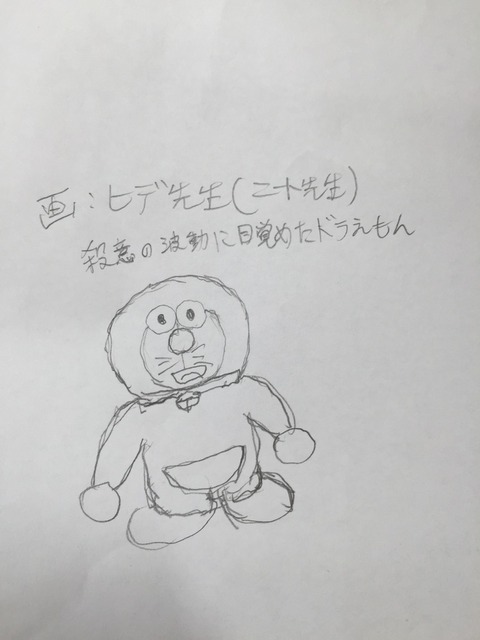 画:ヒデ先生(ニート先生)
殺意の波動に目覚めたドラえもん